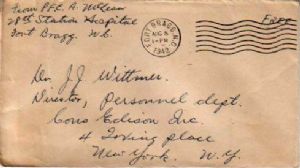 From P.F.C. A. McLean
28th Station Hospital
Fort Bragg. N.C.
FORT BRAGG, N.C.
AUG 8
1-PM
1943
Free
Dr. J.J. Wittmer.
Director, Personnel dept.
Cons Edison Inc.
4 Irving place
New York. N.Y.